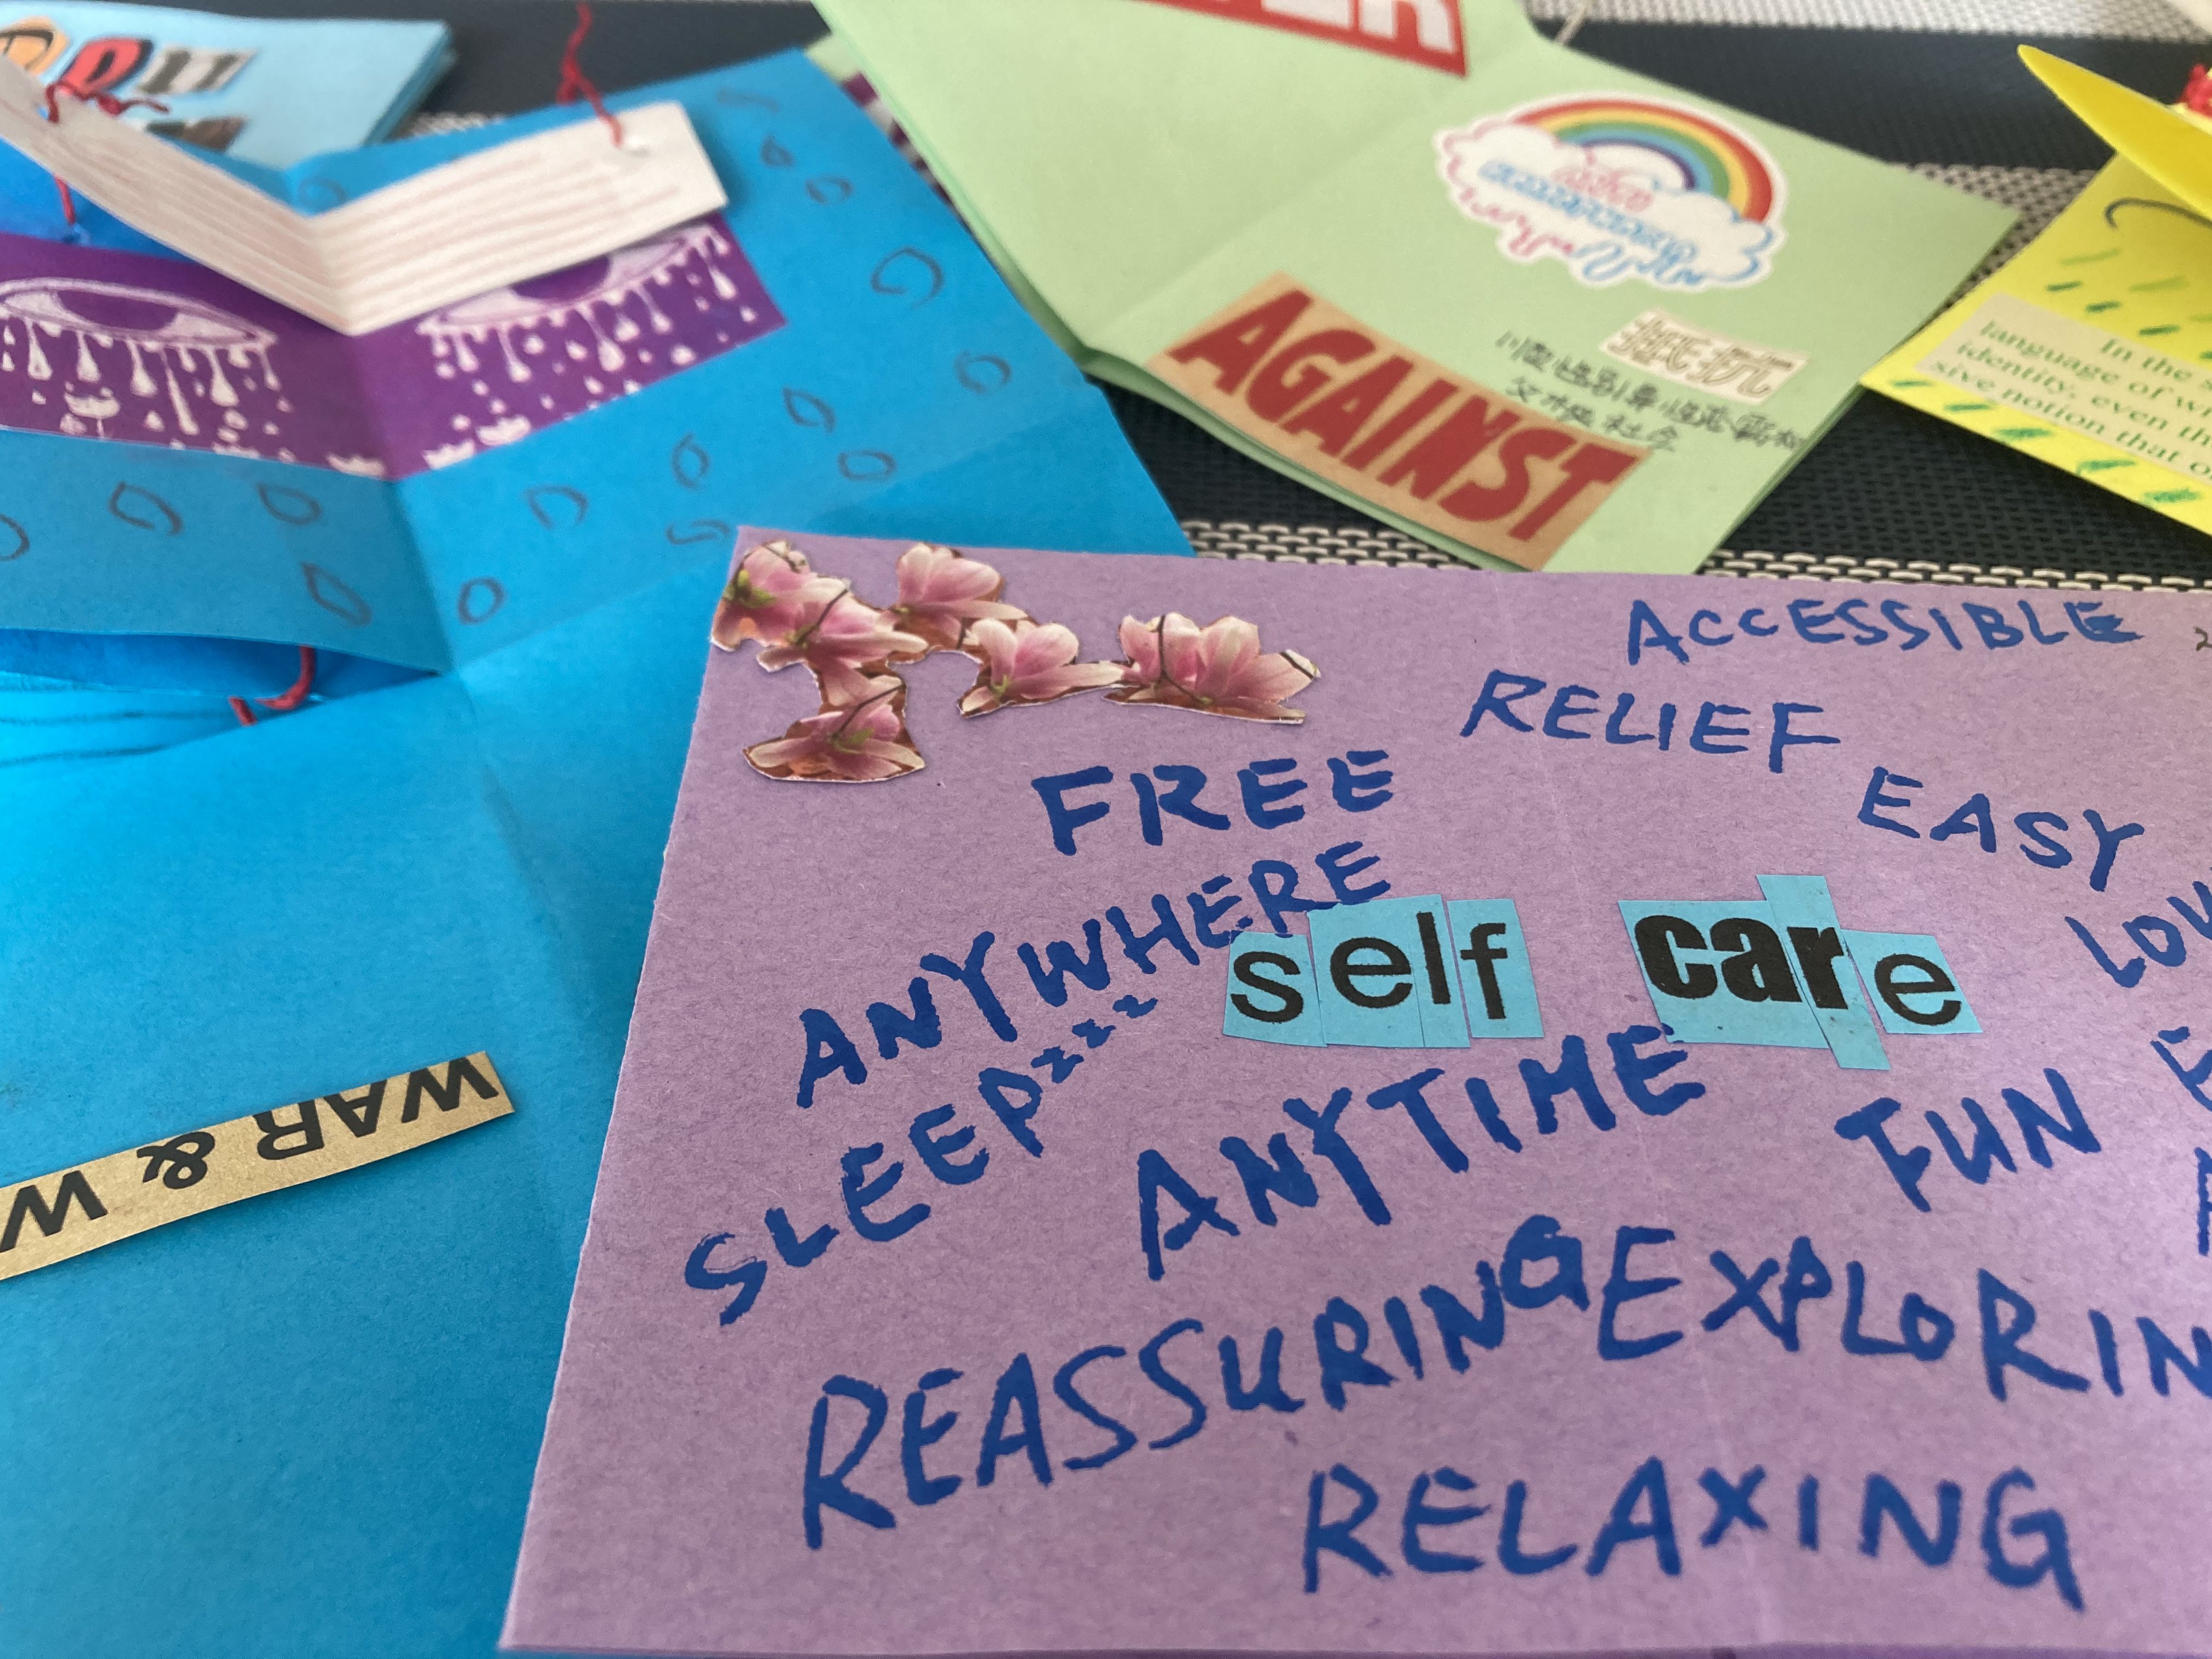 AGAINST
抵抗
In the
language of w
identity, even th
sive notion that o
ACCESSIBLE
RELIEF
FREE
EASY
ANYWHERE
self care
LOV
SLEEPzzzz
ANYTIME
FUN
WAR & W
REASSURING
EXPLORIN
RELAXING